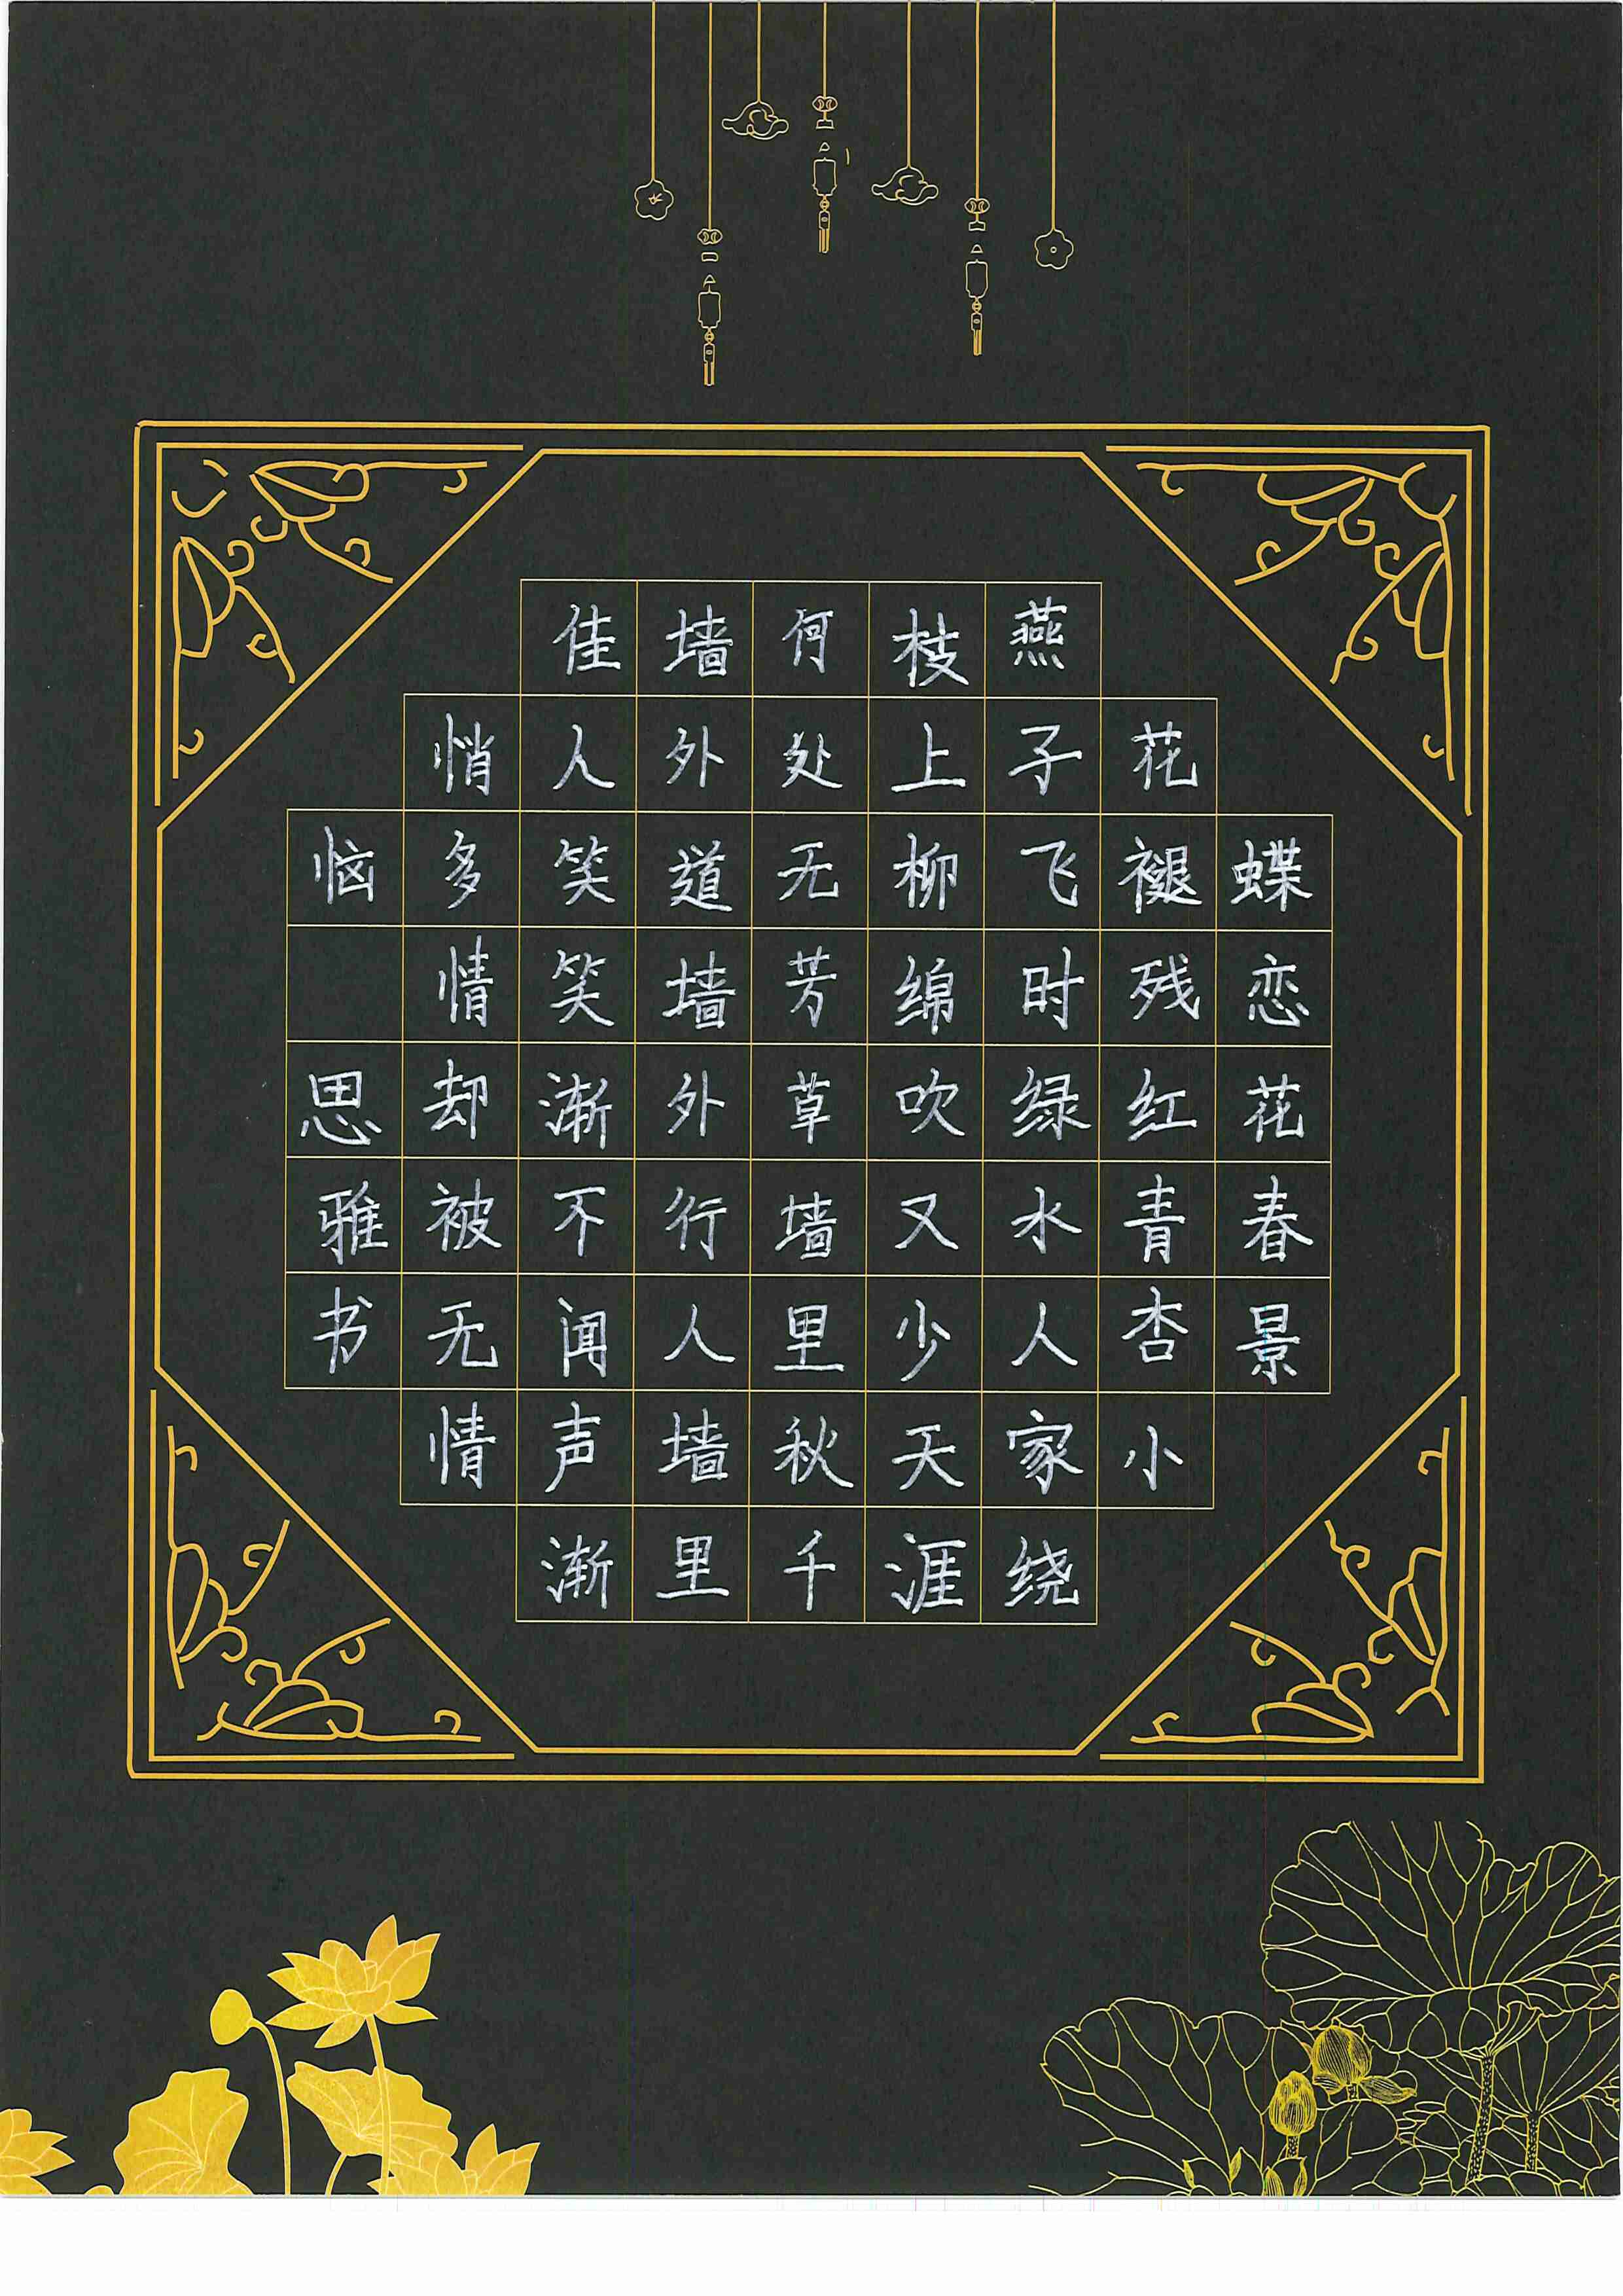 蝶恋花春景
花褪残红青杏小
燕子飞时绿水人家绕
枝上柳绵吹又少天涯
何处无芳草墙里秋千
墙外道墙外行人墙里
佳人笑笑渐不闻声渐
悄多情却被无情
恼 思雅书